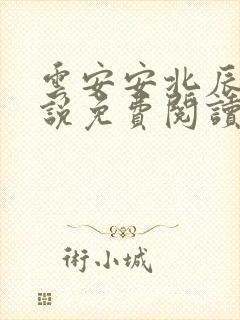 雲安安北辰
說免費閱讀
術小城